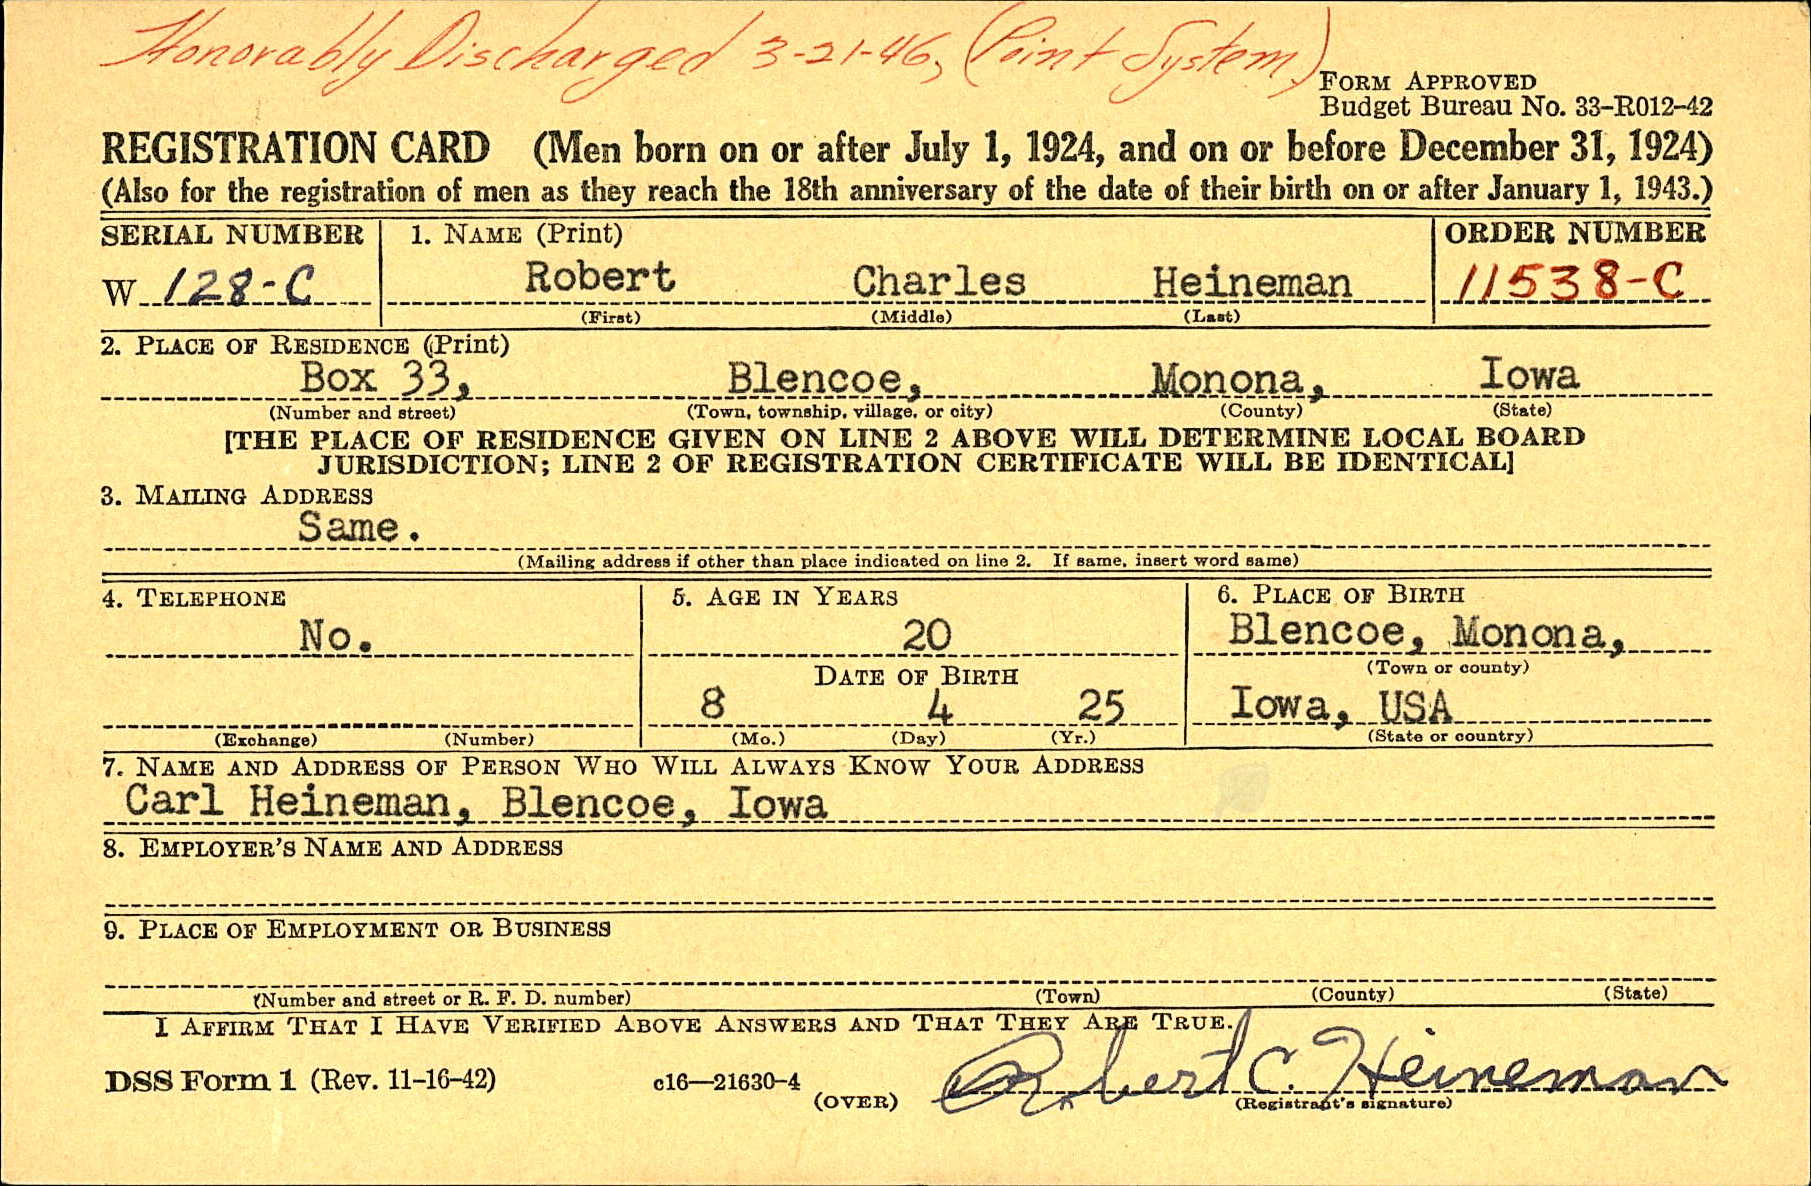 Honorably Discharged 3-21-46, (Point System)
FORM APPROVED
Budget Bureau No. 33-R012-42
REGISTRATION CARD (Men born on or after July 1, 1924, and on or before December 31, 1924)
(Also for the registration of men as they reach the 18th anniversary of the date of their birth on or after January 1, 1943.)
SERIAL NUMBER 1. NAME (Print) ORDER NUMBER
W 128-C Robert Charles Heineman 11538-C
(First) (Middle) (Last)
2. PLACE OF RESIDENCE (Print)
Box 33, Blencoe, Monona, Iowa
(Number and street) (Town, township, village, or city) (County) (State)
[THE PLACE OF RESIDENCE GIVEN ON LINE 2 ABOVE WILL DETERMINE LOCAL BOARD
JURISDICTION; LINE 2 OF REGISTRATION CERTIFICATE WILL BE IDENTICAL]
3. MAILING ADDRESS
Same.
(Mailing address if other than place indicated on line 2. If same, insert word same)
4. TELEPHONE 5. AGE IN YEARS 6. PLACE OF BIRTH
No. 20 Blencoe, Monona,
DATE OF BIRTH (Town or county)
8 4 25 Iowa, USA
(Exchange) (Number) (Mo.) (Day) (Yr.) (State or country)
7. NAME AND ADDRESS OF PERSON WHO WILL ALWAYS KNOW YOUR ADDRESS
Carl Heineman, Blencoe, Iowa
8. EMPLOYER'S NAME AND ADDRESS
9. PLACE OF EMPLOYMENT OR BUSINESS
(Number and street or R. F. D. number) (Town) (County) (State)
I AFFIRM THAT I HAVE VERIFIED ABOVE ANSWERS AND THAT THEY ARE TRUE.
DSS Form 1 (Rev. 11-16-42) c16—21630-4 Robert C. Heineman
(OVER) (Registrant's signature)